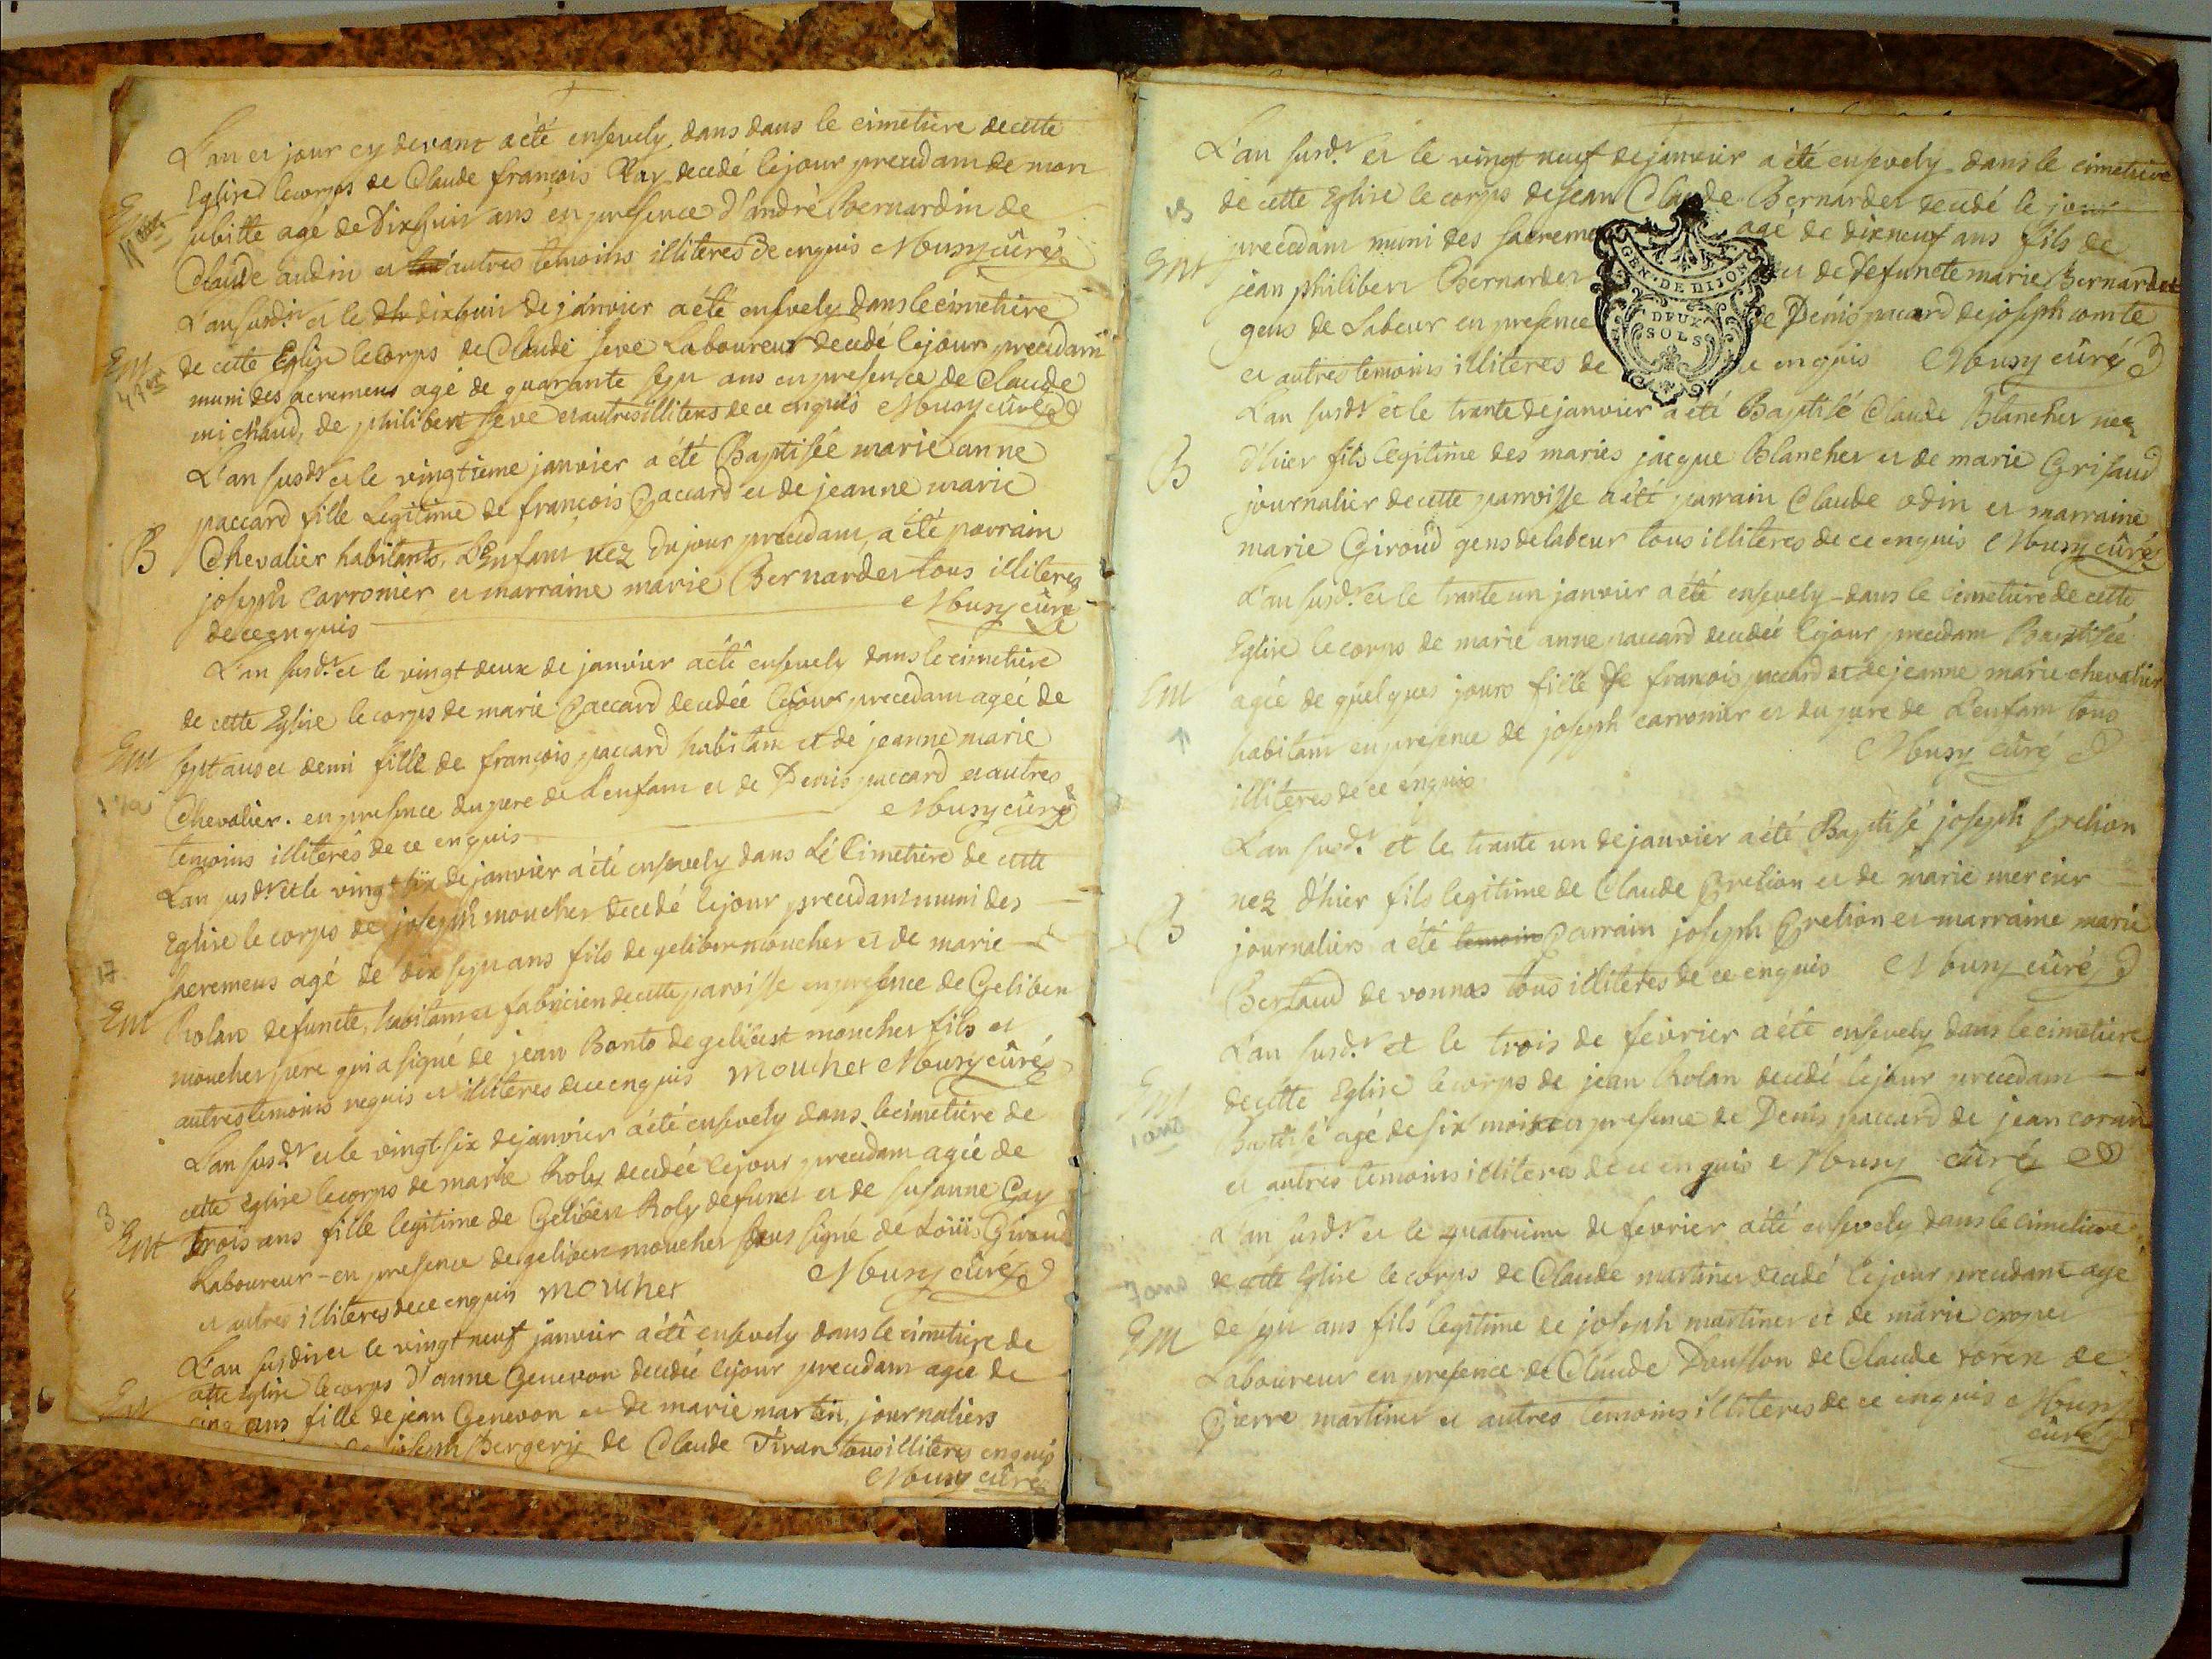 L'an et jour cy devant a été ensevely dans dans le cimetiere de cette
Eglise le corps de Claude françois Ray decedé le jour precedam de mon
subitte agé de Dixhuit ans en presence d'andré Bernardin de
Claude audin et autres temoins illiteres de enquis Musy cûré
L'an susd.t et le dixhuit de janvier a été ensevely dans le cimetiere
de cette Eglise le corps de Claude seve Laboureur decedé le jour precedam
muni des sacremens agé de quarante sept ans en presence de Claude
michaud, de philibert seve et autres illiteres de ce enquis Musy cûré
L'an susd.t et le vingtieme janvier a été Baptisée marie anne
paccard fille Legitime de françois Paccard et de jeanne marie
B Chevalier habitants, L'Enfant nez du jour precedam, a été parrain
joseph carronier et marraine marie Bernardet tous illiteres
de ce enquis Musy cûré
L'an susd.t et le vingt deux de janvier a été ensevely dans le cimetiere
de cette Eglise le corps de marie Paccard decedée le jour precedam agée de
Em sept ans et demi fille de françois paccard habitant et de jeanne marie
Chevalier. en presence du pere de L'enfam et de Denis paccard et autres
temoins illiterés de ce enquis Musy cûré
L'an susd.t et le vingt six de janvier a été ensevely dans Le Cimetiere de cette
Eglise le corps de joseph mouchet decedé le jour precedant muni des
17 sacremens agé de dix sept ans fils de gelibert mouchet et de marie
Em Rolan defuncte, habitam et fabricien de cette paroisse en presence de Gelibert
mouchet pere qui a signé de jean Bonto de gelibert mouchet fils et
autres temoins requis et illiteres de ce enquis mouchet Musy cûré
L'an susd.t et le vingt-six de janvier a été ensevely dans le cimetiere de
cette Eglise le corps de marie Roly decedée le jour precedam agée de
3 Em trois ans fille legitime de Gelibert Roly defunct et de susanne Gay
Laboureur - en presence de gelibert mouchet sous signé de Loüis Giroud
et autres illiteres de ce enquis mouchet Musy cûré
L'an susdit et le vingt neuf janvier a été ensevely dans le cimetiere de
cette Eglise le corps d'anne Genevon decedée le jour precedam agée de
Em cinq ans fille de jean Genevon et de marie martin, journaliers
joseph Bergery de Claude Tivan tous illiteres enquis
Musy cûré
L'an susd.t et le vingt neuf de janvier a été ensevely dans le cimetiere
de cette Eglise le corps de jean Claude Bernardet decedé le jour
precedam muni des sacreme agé de dix neuf ans fils de
Em jean philibert Bernardet et de defuncte marie Bernardet
gens de Labeur en presence de Denis paccard de joseph comte
et autres temoins illiteres de ce enquis Musy cûré
GEN. DE DIJON
DEUX
SOLS
L'an susd.t et le trante de janvier a été Baptisé Claude Blanchet nez
B d'hier fils legitime des mariés jacque Blanchet et de marie Grisaud
journalier de cette parroisse a été parrain Claude odin et marraine
marie Giroud gens de labeur tous illiteres de ce enquis Musy cûré
L'an susd.t et le trante un janvier a été ensevely dans le cimetiere de cette
Eglise le corps de marie anne paccard decedée le jour precedam Baptisée
Em agée de quelques jours fille de francois paccard et de jeanne marie chevalier
habitam en presence de joseph carronier et du pere de L'enfam tous
illiteres de ce enquis Musy cûré
L'an susd.t et le trante un de janvier a été Baptisé joseph prelion
nez d'hier fils legitime de Claude Prelion et de marie mercier
B journaliers a été temoin parrain joseph Prelion et marraine marie
Bertaud de vonnas tous illiteres de ce enquis Musy cûré
L'an susd.t et le trois de fevrier a été ensevely dans le cimetiere
Em de cette Eglise le corps de jean Rolan decedé le jour precedam
baptisé agé de six mois en presence de Denis paccard de jean corand
et autres temoins illiteres de ce enquis Musy cûré
L'an susd.t et le quatrieme de fevrier a été ensevely dans le cimetiere
7 ans de cette Eglise le corps de Claude martinet decedé le jour precedant agé
Em de sept ans fils legitime de joseph martinet et de marie cropet
Laboureur en presence de Claude Douslon de Claude toren de
Pierre martinet et autres temoins illiteres de ce enquis Musy
cûré